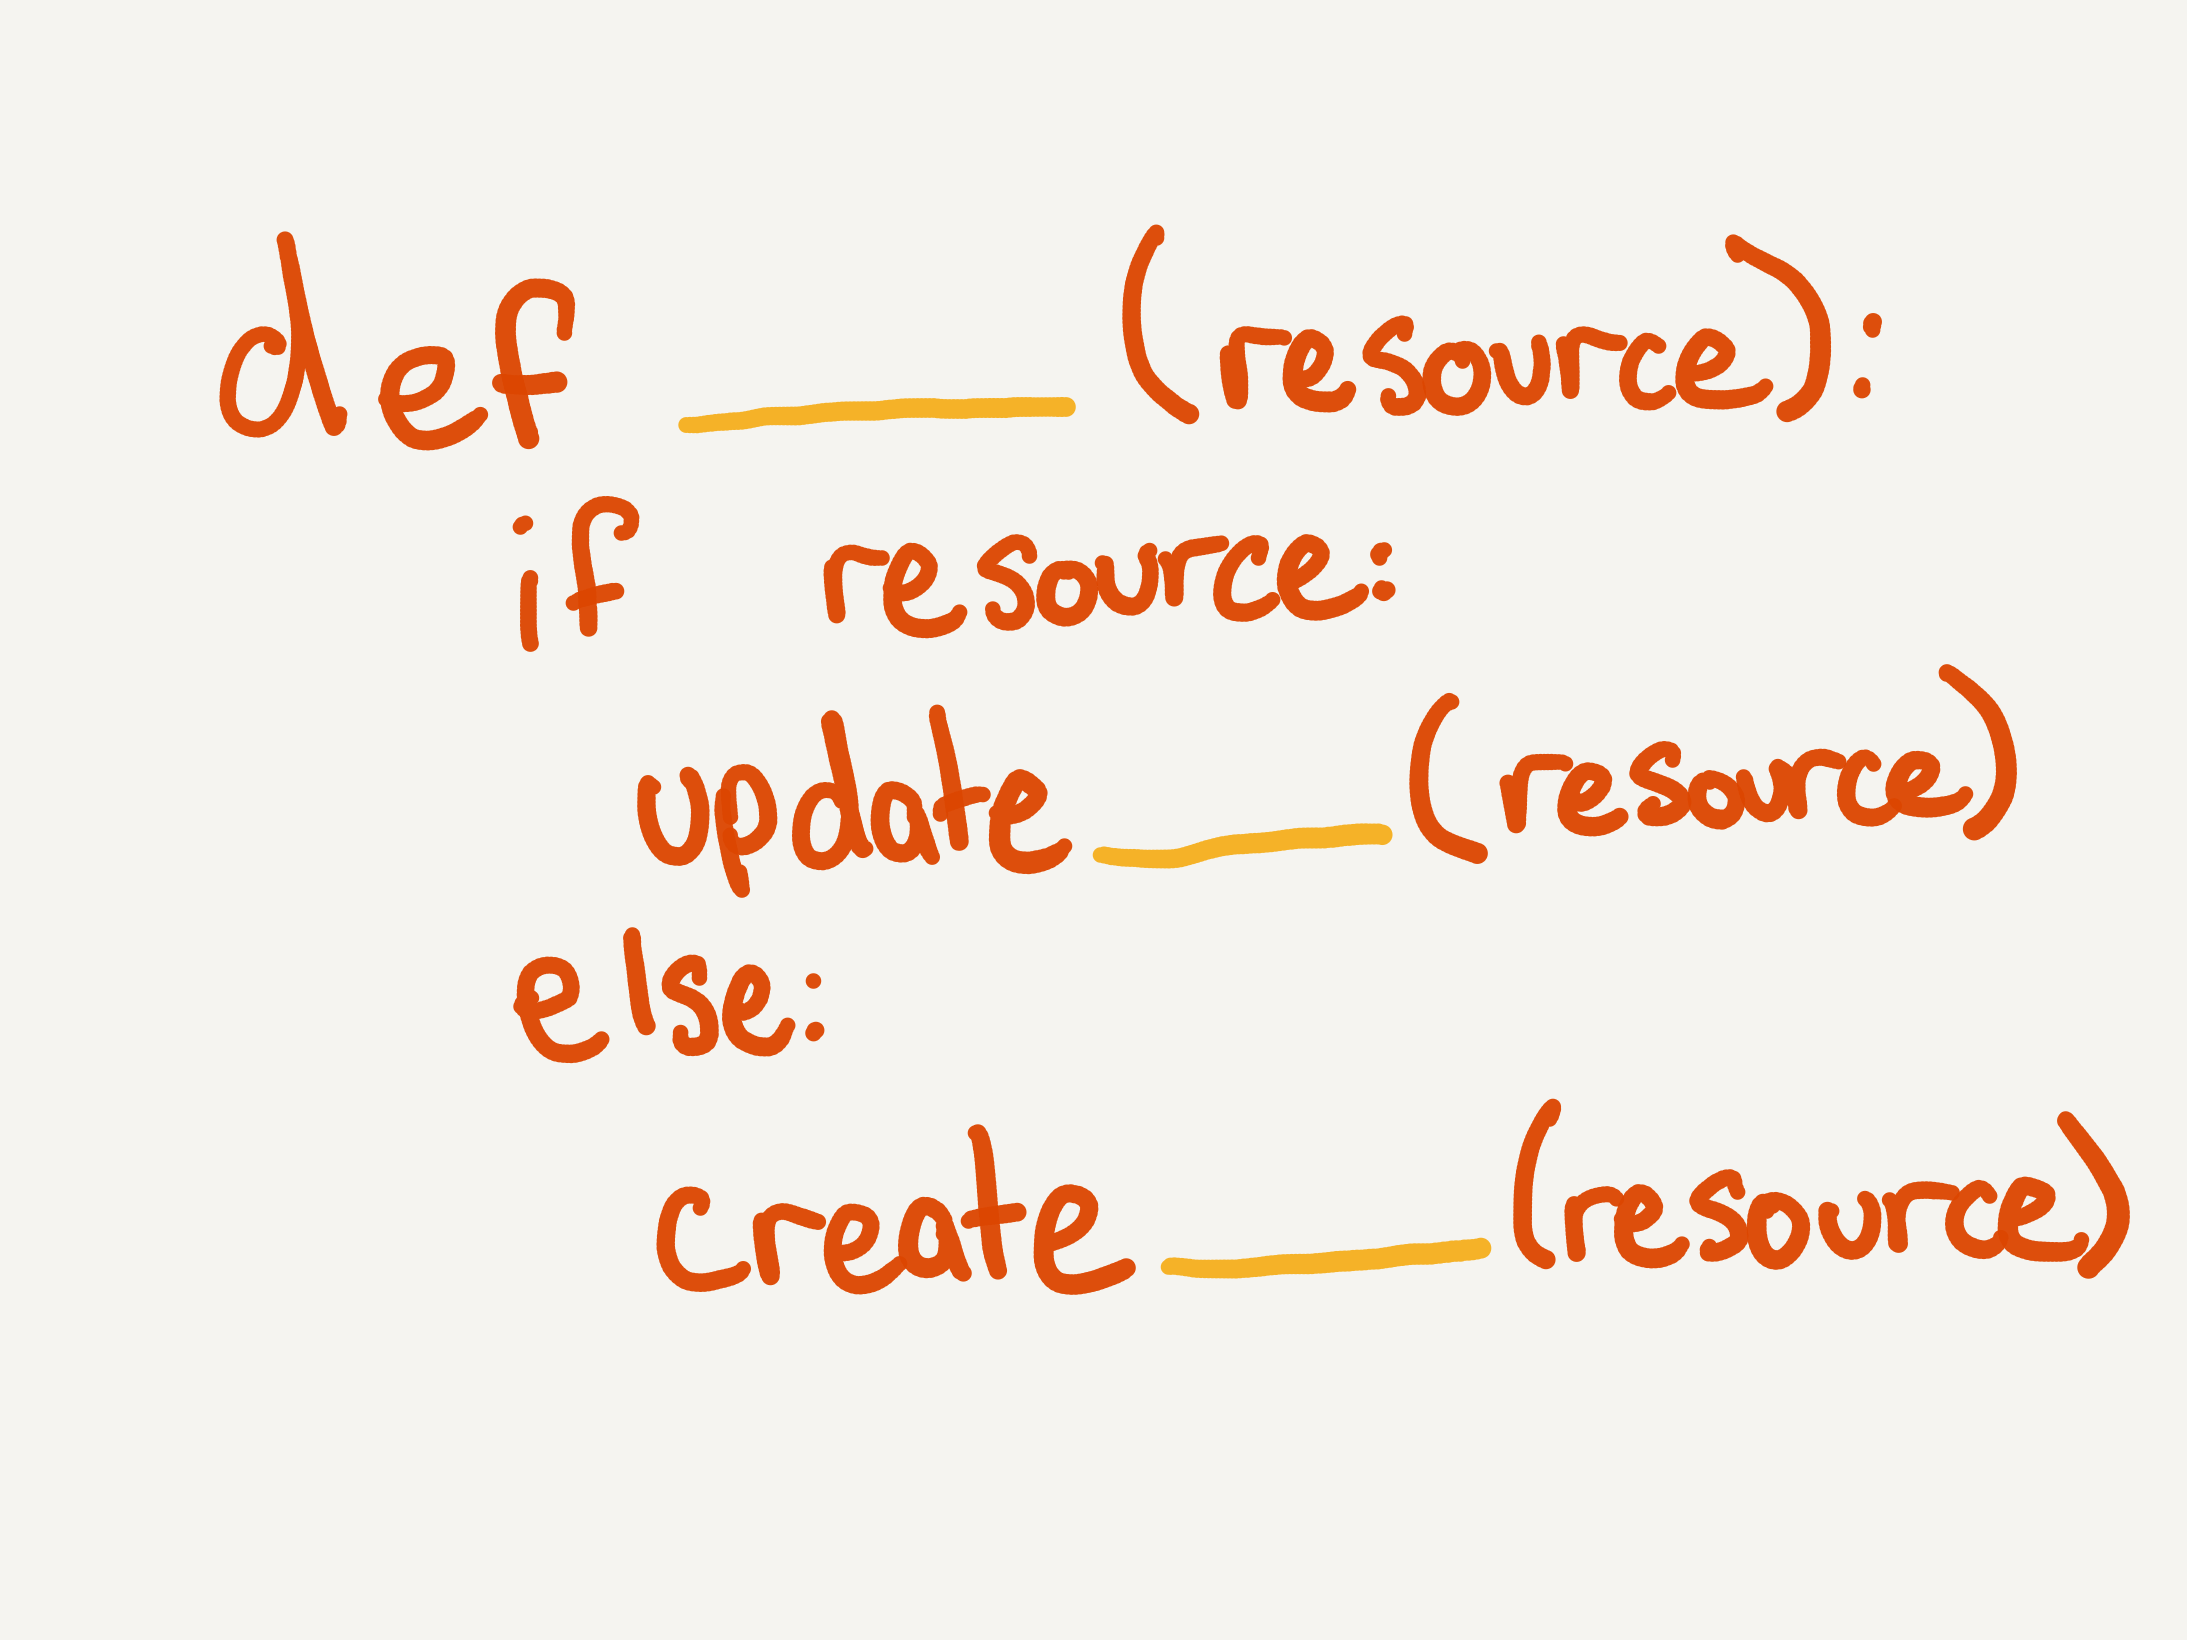 def ______ (resource):
if resource:
update_____(resource)
else:
create_____(resource)